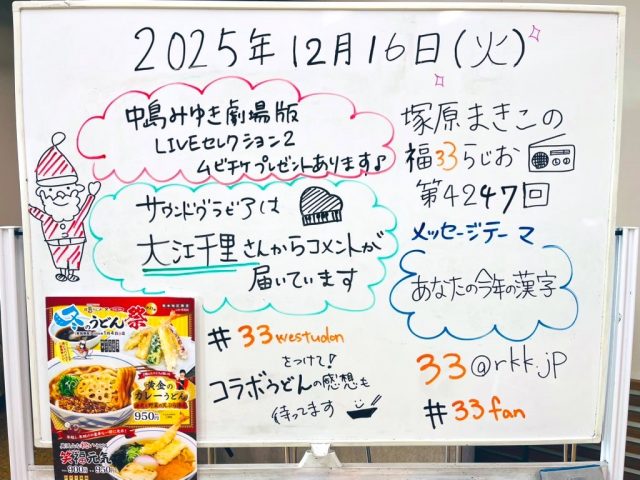 2025年12月16日(火)
中島みゆき劇場版
LIVEセレクション2
ムビチケプレゼントあります♪
サウンドグラビアは
大江千里さんからコメントが
届いています
塚原まきこの
福33らじお
第4247回
メッセージテーマ
あなたの今年の漢字
33@rkk.jp
#33fan
#33westudon
をつけて!
コラボうどんの感想も
待ってます
冬のうどん祭
黄金の
カレーうどん
950円